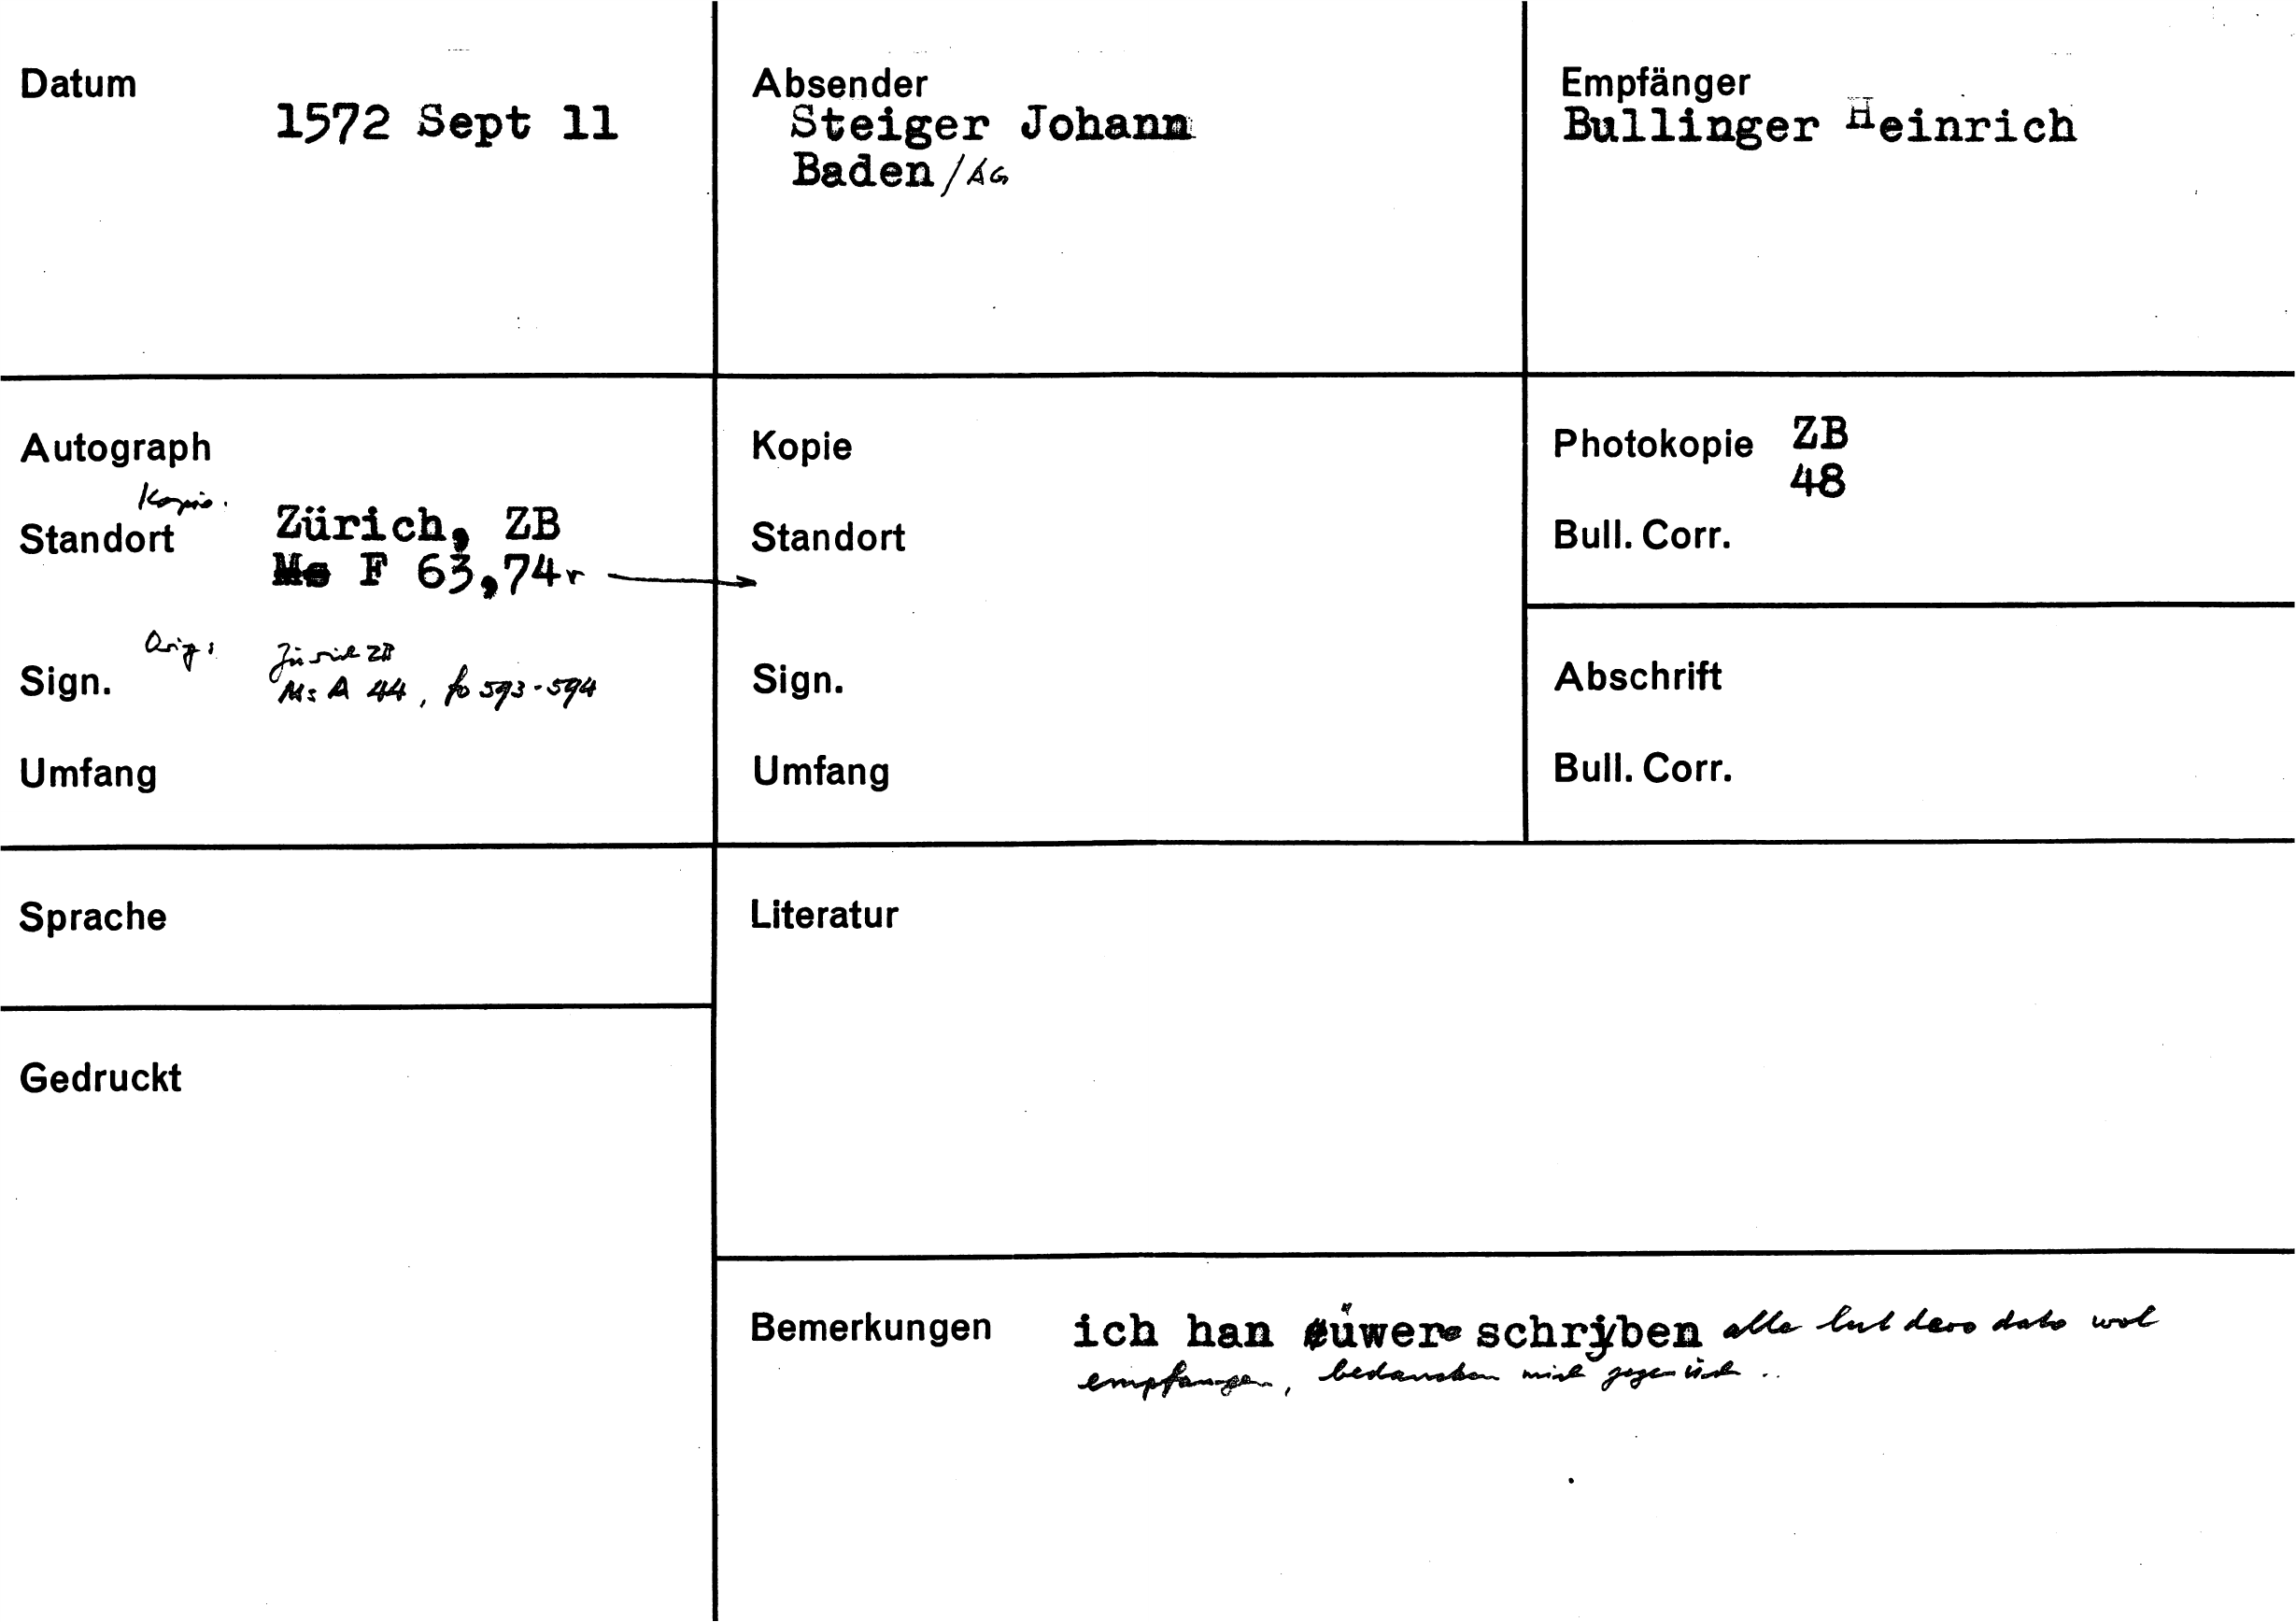 Datum
1572 Sept 11
Absender
Steiger Johann
Baden /AG
Empfänger
Bullinger Heinrich
Autograph
Kopie.
Standort
Zürich, ZB
Ms F 63,74r
Orig:
Zürich ZB
Sign.
Ms A 44, fo 593-594
Umfang
Kopie
Standort
Sign.
Umfang
Photokopie ZB
48
Bull. Corr.
Abschrift
Bull. Corr.
Sprache
Gedruckt
Literatur
Bemerkungen ich han üwere schryben alle lut dero dato wol
empfangen, bedancken mich gegen üch ..